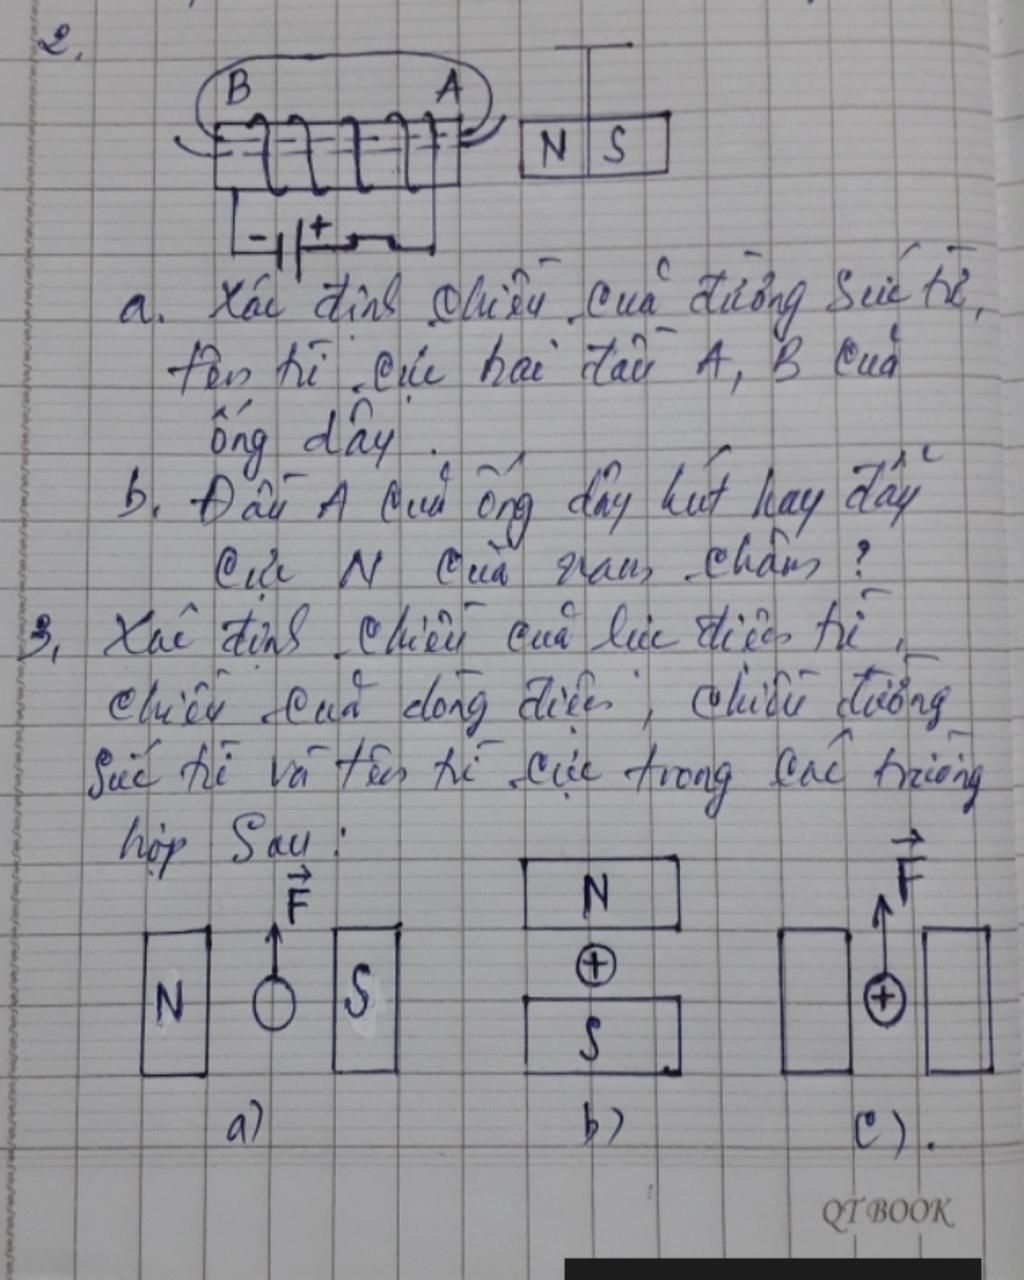 2.
B A
N S
- +
a. Xác định chiều của đường sức từ,
tên từ cực hai đầu A, B của
ống dây.
b. Đầu A của ống dây hút hay đẩy
cực N của nam châm?
3, Xác định chiều của lực điện từ,
chiều của dòng điện, chiều đường
sức từ và tên từ cực trong các trường
hợp sau:
F N F
N S + +
S
a) b) c).
QT BOOK